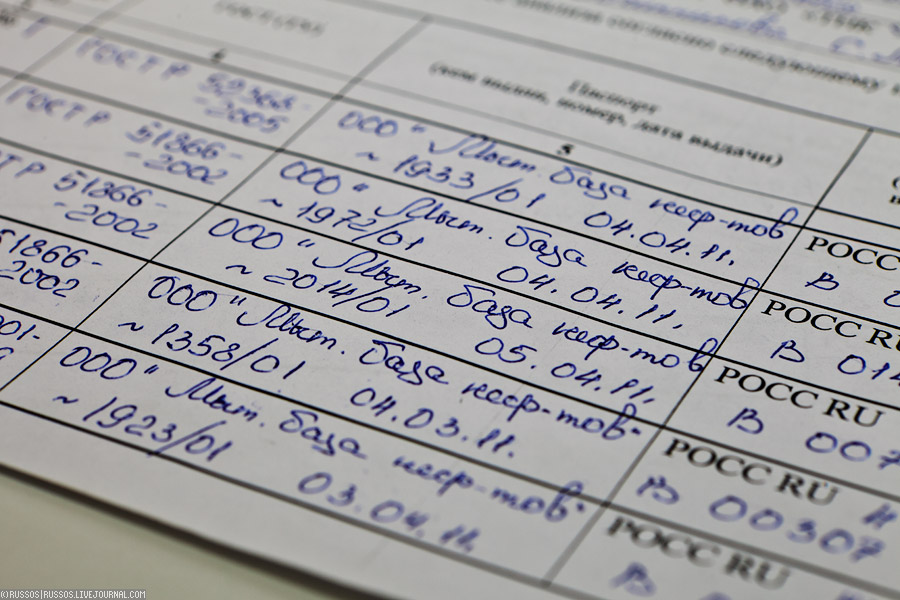 Паспорт
(кем выдан, номер, дата выдачи)
4
5
ГОСТ Р 52368-
-2005
ООО "Мыт. база неф-тов
~ 1933/01 04.04.11.
РОСС
В
ГОСТ Р 51866-
-2002
ООО "Мыт. база неф-тов
~ 1972/01 04.04.11.
РОСС RU
В 014
Т Р 51866-
-2002
ООО "Мыт. база неф-тов
~ 2014/01 05.04.11.
РОСС RU
В 007
51866-
-2002
ООО "Мыт. база неф-тов.
~ 1358/01 04.03.11.
РОСС RU
В 00307
001-
ООО "Мыт. база неф-тов.
~ 1923/01 03.04.11.
РОСС RU
В
©RUSSOS|RUSSOS.LIVEJOURNAL.COM